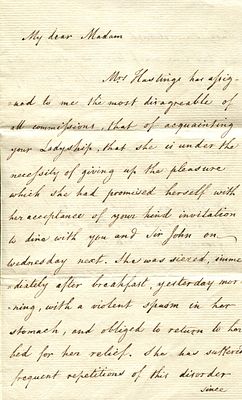 My dear Madam
Mrs Hastings has assig-
-ned to me the most disagreable of
all commissions, that of acquainting
your Ladyship, that she is under the
necessity of giving up the pleasure
which she had promised herself with
her acceptance of your kind invitation
to dine with you and Sir John on
wednesday next. She was siezed, imme
diately after breakfast, yesterday mor-
-ning, with a violent spasm in her
stomach, and obliged to return to her
bed for her relief. She has suffered
frequent repetitions of this disorder
since